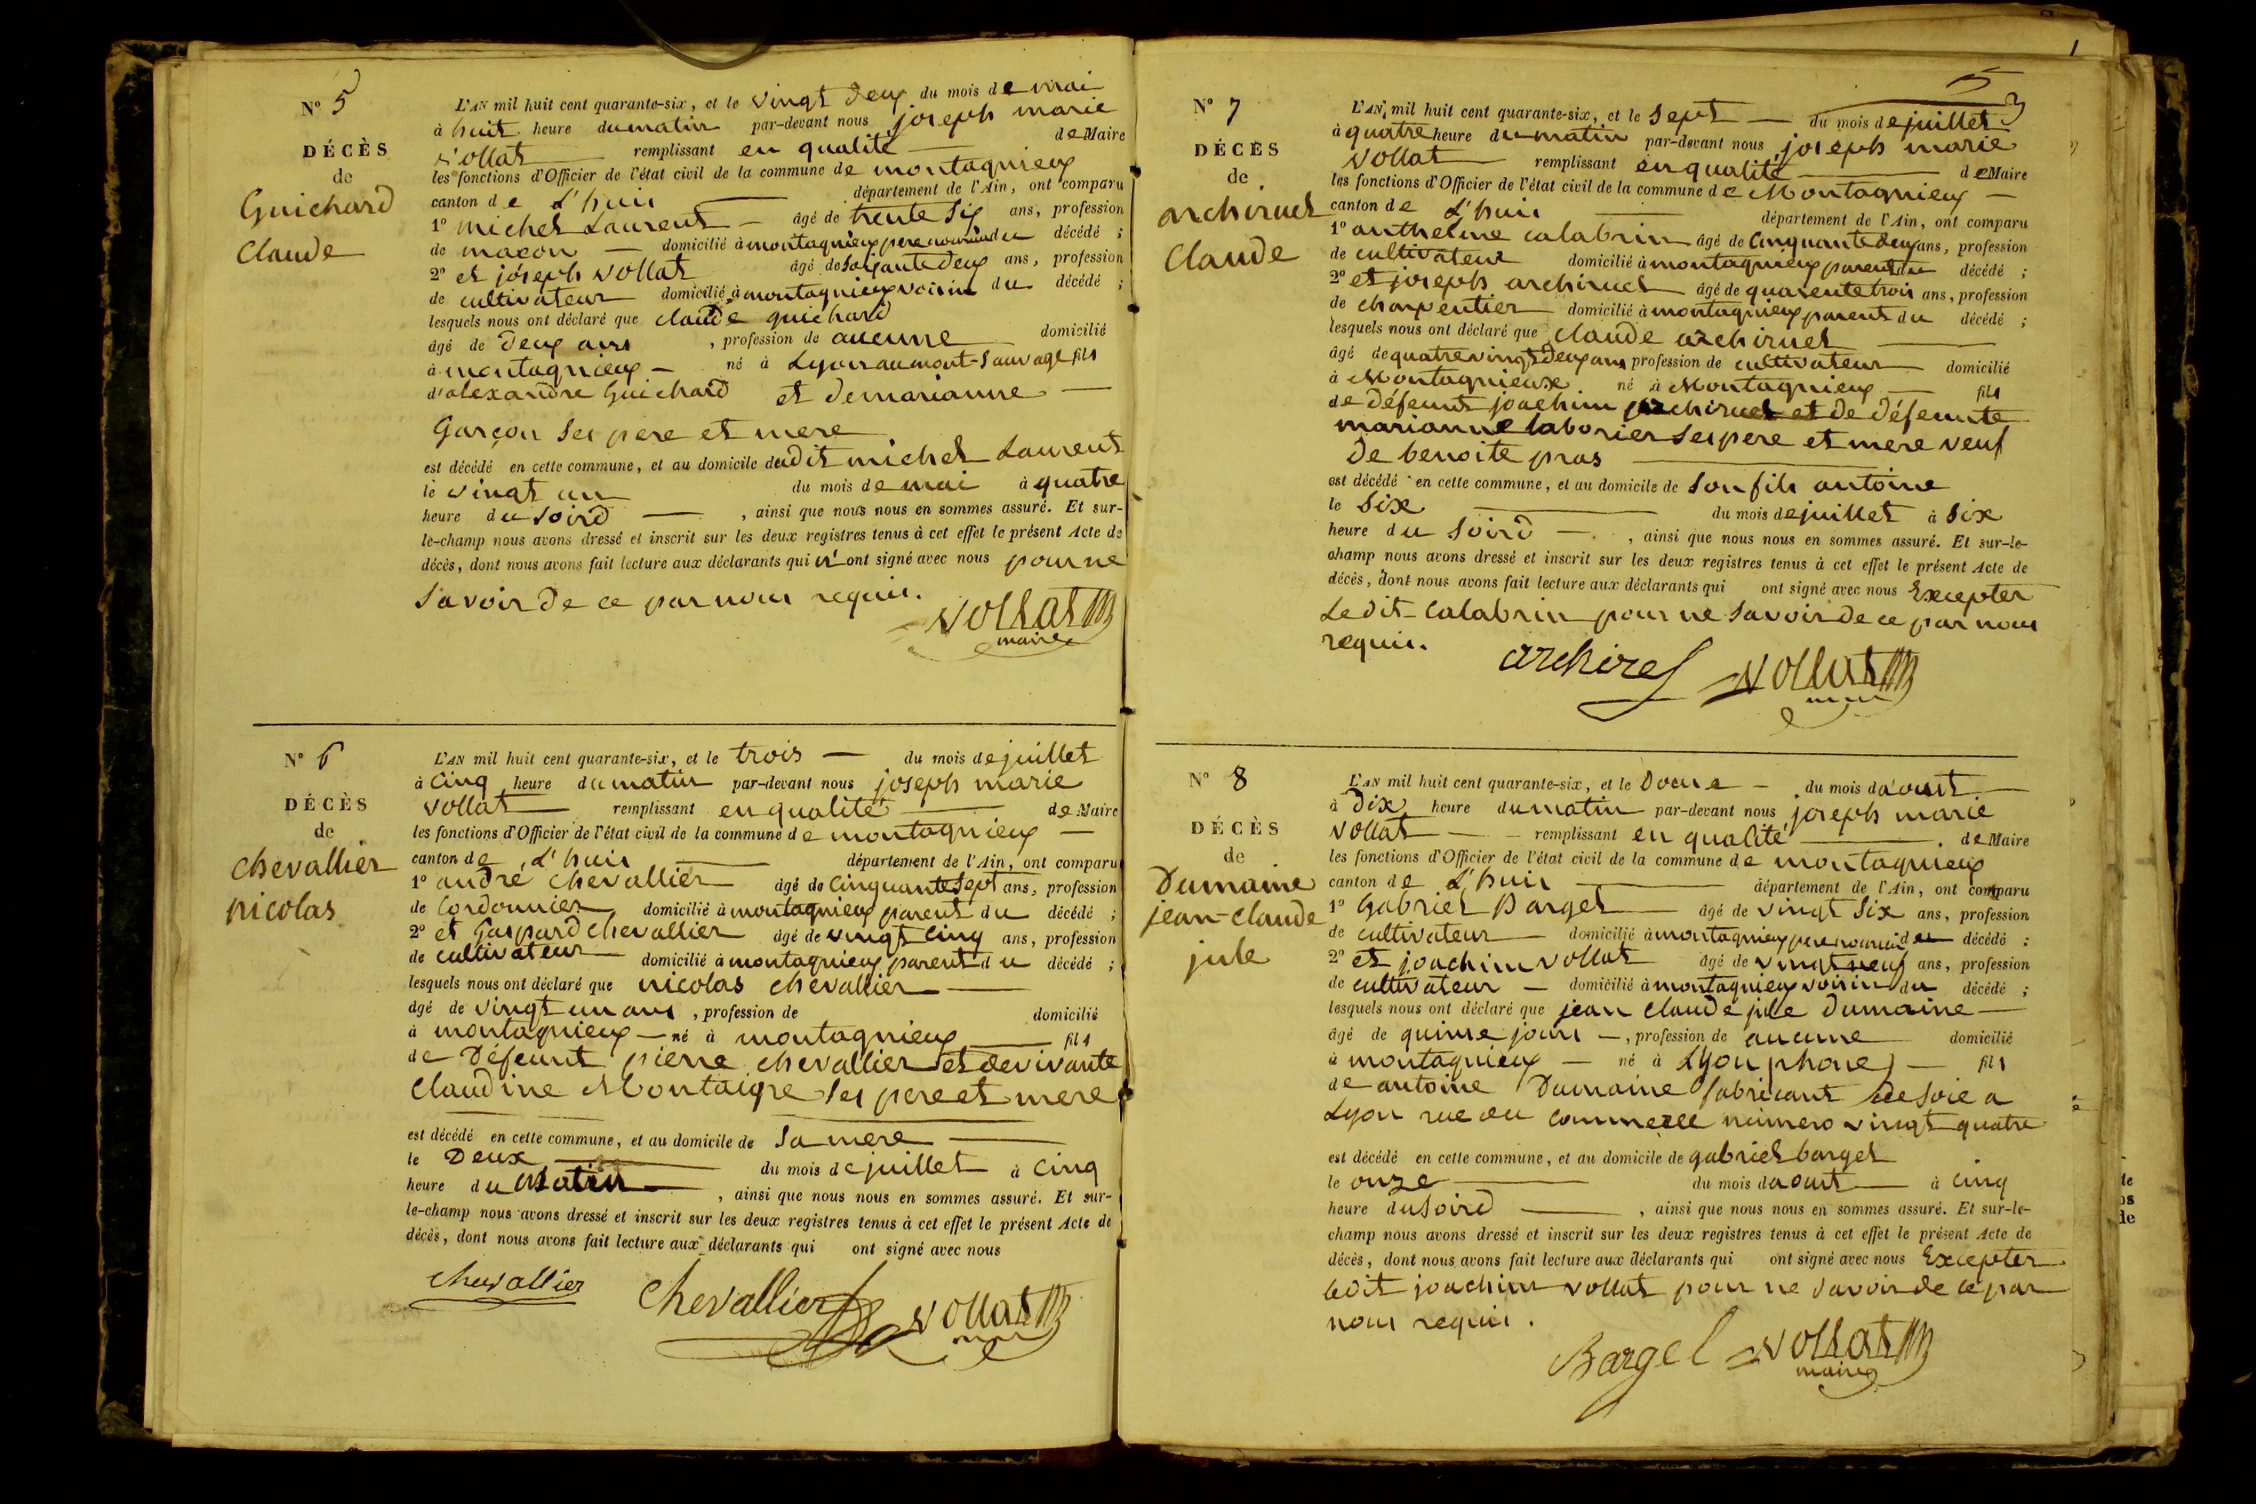 N° 5
DÉCÈS
de
Guichard
Claude
L'AN mil huit cent quarante-six, et le vingt deux du mois de mai
à huit heure du matin par-devant nous joseph marie
vollat remplissant en qualité de Maire
les fonctions d'Officier de l'état civil de la commune de montagnieux
canton de L'huis département de l'Ain, ont comparu
1° michel Laurent âgé de trente six ans, profession
de maçon domicilié à montagnieux pere nouricier du décédé ;
2° et joseph vollat âgé de soixante deux ans, profession
de cultivateur domicilié à montagnieux voisin du décédé ;
lesquels nous ont déclaré que claude guichard
âgé de deux ans , profession de aucune domicilié
à montagnieux né à Lyon au mont-sauvage fils
d'alexandre Guichard et de marianne
Garçon ses pere et mere
est décédé en cette commune, et au domicile dudit michel Laurent
le vingt un du mois de mai à quatre
heure du soird , ainsi que nous nous en sommes assuré. Et sur-
le-champ nous avons dressé et inscrit sur les deux registres tenus à cet effet le présent Acte de
décès, dont nous avons fait lecture aux déclarants qui n'ont signé avec nous pour ne
savoir de ce par nous requis.
vollat
maire
N° 6
DÉCÈS
de
chevallier
nicolas
L'AN mil huit cent quarante-six, et le trois du mois de juillet
à cinq heure du matin par-devant nous joseph marie
vollat remplissant en qualité de Maire
les fonctions d'Officier de l'état civil de la commune de montagnieux
canton de L'huis département de l'Ain, ont comparu
1° andré chevallier âgé de cinquante sept ans, profession
de cordonnier domicilié à montagnieux parent du décédé ;
2° et Gaspard chevallier âgé de vingt cinq ans, profession
de cultivateur domicilié à montagnieux parent du décédé ;
lesquels nous ont déclaré que nicolas chevallier
âgé de vingt un ans , profession de domicilié
à montagnieux né à montagnieux fils
de Défeunt pierre chevallier et de vivante
Claudine Montaigre ses pere et mere
est décédé en cette commune, et au domicile de sa mere
le Deux du mois de juillet à cinq
heure du Matin , ainsi que nous nous en sommes assuré. Et sur-
le-champ nous avons dressé et inscrit sur les deux registres tenus à cet effet le présent Acte de
décès, dont nous avons fait lecture aux déclarants qui ont signé avec nous
chevallier chevallier vollat
N° 7
DÉCÈS
de
archiruel
Claude
L'AN mil huit cent quarante-six, et le sept du mois de juillet
à quatre heure du matin par-devant nous joseph marie
vollat remplissant en qualité de Maire
les fonctions d'Officier de l'état civil de la commune de Montagnieux
canton de L'huis département de l'Ain, ont comparu
1° anthelme calabrin âgé de cinquante deux ans, profession
de cultivateur domicilié à montagnieux parent du décédé ;
2° et joseph archiruel âgé de quarente trois ans, profession
de charpentier domicilié à montagnieux parent du décédé ;
lesquels nous ont déclaré que claude archiruel
âgé de quatre vingt deux ans profession de cultivateur domicilié
à Montagnieux né à Montagnieux fils
de défeunt joachim archiruel et de défeunte
marianne laborier ses pere et mere veuf
de benoite pras
est décédé en cette commune, et au domicile de son fils antoine
le six du mois de juillet à six
heure du soird , ainsi que nous nous en sommes assuré. Et sur-le-
champ nous avons dressé et inscrit sur les deux registres tenus à cet effet le présent Acte de
décès, dont nous avons fait lecture aux déclarants qui ont signé avec nous Excepter
Le dit calabrin pour ne savoir de ce par nous
requis.
archirel vollat
N° 8
DÉCÈS
de
Dumaine
jean-claude
jule
L'AN mil huit cent quarante-six, et le Douze du mois d'aout
à dix heure du matin par-devant nous joseph marie
vollat remplissant en qualité de Maire
les fonctions d'Officier de l'état civil de la commune de montagnieux
canton de L'huis département de l'Ain, ont comparu
1° Gabriel Bargel âgé de vingt six ans, profession
de cultivateur domicilié à montagnieux pere nouricier du décédé ;
2° et joachim vollat âgé de vingt neuf ans, profession
de cultivateur domicilié à montagnieux voisin du décédé ;
lesquels nous ont déclaré que jean claude jule Dumaine
âgé de quinze jours , profession de aucune domicilié
à montagnieux né à Lyon rhone fils
de antoine Dumaine fabricant de soie a
Lyon rue du commerce numero vingt quatre
est décédé en cette commune, et au domicile de gabriel bargel
le onze du mois d'aout à cinq
heure du soird , ainsi que nous nous en sommes assuré. Et sur-le-
champ nous avons dressé et inscrit sur les deux registres tenus à cet effet le présent Acte de
décès, dont nous avons fait lecture aux déclarants qui ont signé avec nous Excepter
ledit joachim vollat pour ne savoir de ce par
nous requis.
Bargel vollat
maire